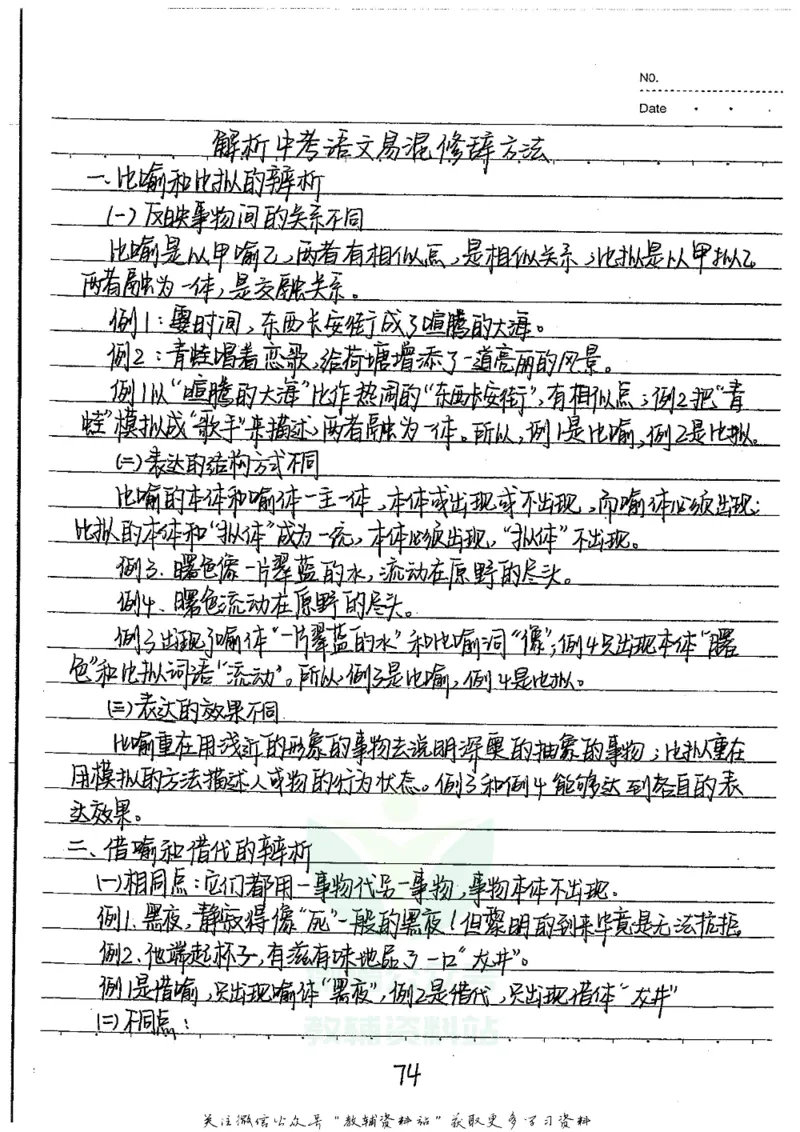 NO.
Date
解析中考语文易混修辞方法
一、比喻和比拟的辨析
(一)反映事物间的关系不同
比喻是以甲喻乙,两者有相似点,是相似关系;比拟是以甲拟乙
两者融为一体,是交融关系。
例1:霎时间,东西长安街成了喧腾的大海。
例2:青蛙唱着恋歌,给荷塘增添了一道亮丽的风景。
例1以“喧腾的大海”比作热闹的“东西长安街”,有相似点;例2把“青
蛙”模拟成“歌手”来描述,两者融为一体。所以,例1是比喻,例2是比拟。
(二)表达的结构方式不同
比喻的本体和喻体一主一体,本体或出现或不出现,而喻体必须出现;
比拟的本体和“拟体”成为一统,本体必须出现,“拟体”不出现。
例3.曙色像一片翠蓝的水,流动在原野的尽头。
例4.曙色流动在原野的尽头。
例3出现了喻体“一片翠蓝的水”和比喻词“像”;例4只出现本体“曙
色”和比拟词语“流动”。所以,例3是比喻,例4是比拟。
(三)表达的效果不同
比喻重在用浅近的形象的事物去说明深奥的抽象的事物;比拟重在
用模拟的方法描述人或物的行为状态。例3和例4能够达到各自的表
达效果。
二、借喻和借代的辨析
(一)相同点:它们都用一事物代另一事物,事物本体不出现.
例1.黑夜,静寂得像“死”一般的黑夜!但黎明的到来毕竟是无法抗拒
例2.他端起杯子,有滋有味地品了一口“龙井”。
例1是借喻,只出现喻体“黑夜”,例2是借代,只出现借体“龙井”
(二)不同点:
教辅资料站
74
关注微信公众号"教辅资料站"获取更多学习资料